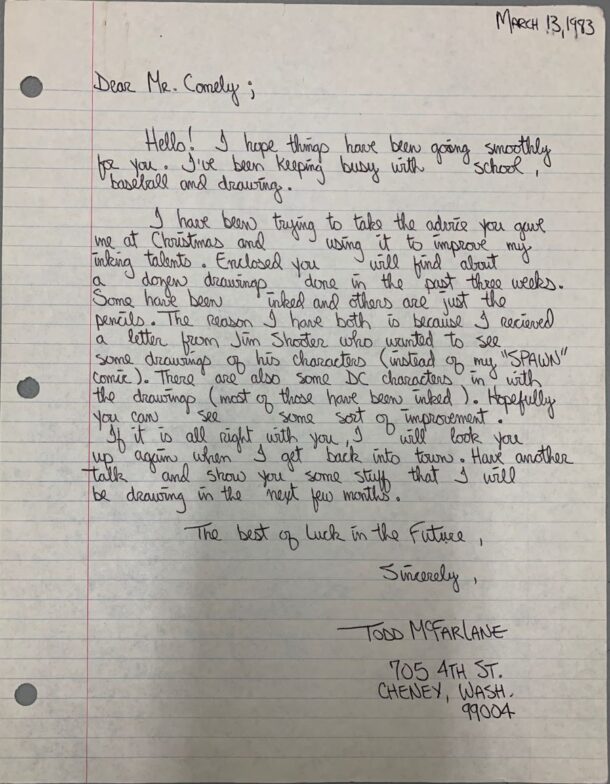 MARCH 13, 1983
Dear Mr. Comely;
Hello! I hope things have been going smoothly
for you. I've been keeping busy with school,
baseball and drawing.
I have been trying to take the advice you gave
me at Christmas and using it to improve my
inking talents. Enclosed you will find about
a dozen drawings done in the past three weeks.
Some have been inked and others are just the
pencils. The reason I have both is because I recieved
a letter from Jim Shooter who wanted to see
some drawings of his characters (instead of my "SPAWN"
comic). There are also some DC characters in with
the drawings (most of those have been inked). Hopefully
you can see some sort of improvement.
If it is all right with you, I will look you
up again when I get back into town. Have another
talk and show you some stuff that I will
be drawing in the next few months.
The best of Luck in the Future,
Sincerely,
TODD McFARLANE
705 4TH ST.
CHENEY, WASH.
99004